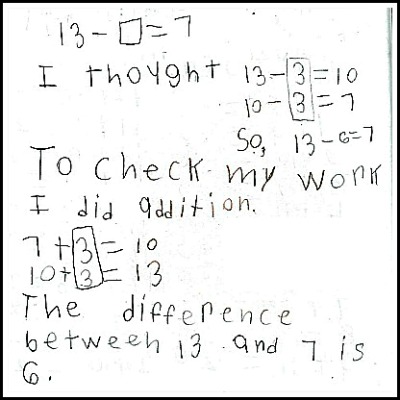 13 - □ = 7
I thought 13 - 3 = 10
10 - 3 = 7
So, 13 - 6 = 7
To check my work
I did addition.
7 + 3 = 10
10 + 3 = 13
The difference
between 13 and 7 is
6.